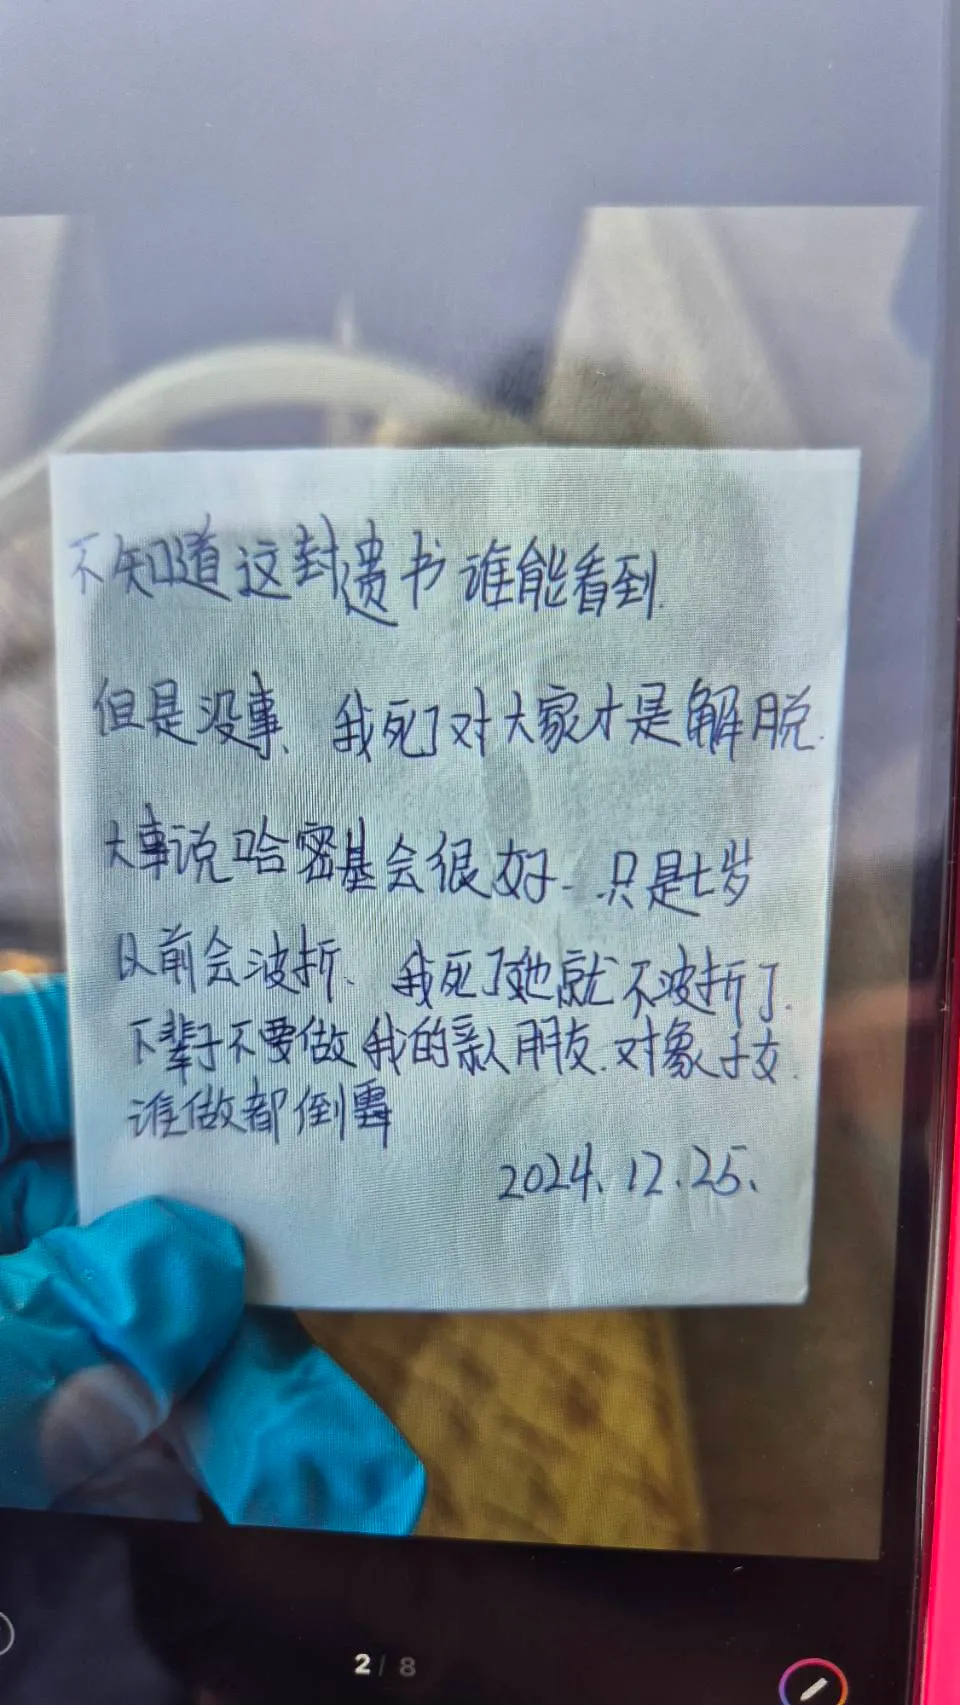 不知道这封遗书谁能看到.
但是没事、我死了对大家才是解脱.
大事说哈密基会很好.只是七岁
以前会波折、我死了她就不波折了.
下辈子不要做我的亲人朋友.对象子女.
谁做都倒霉
2024.12.25.
2 / 8